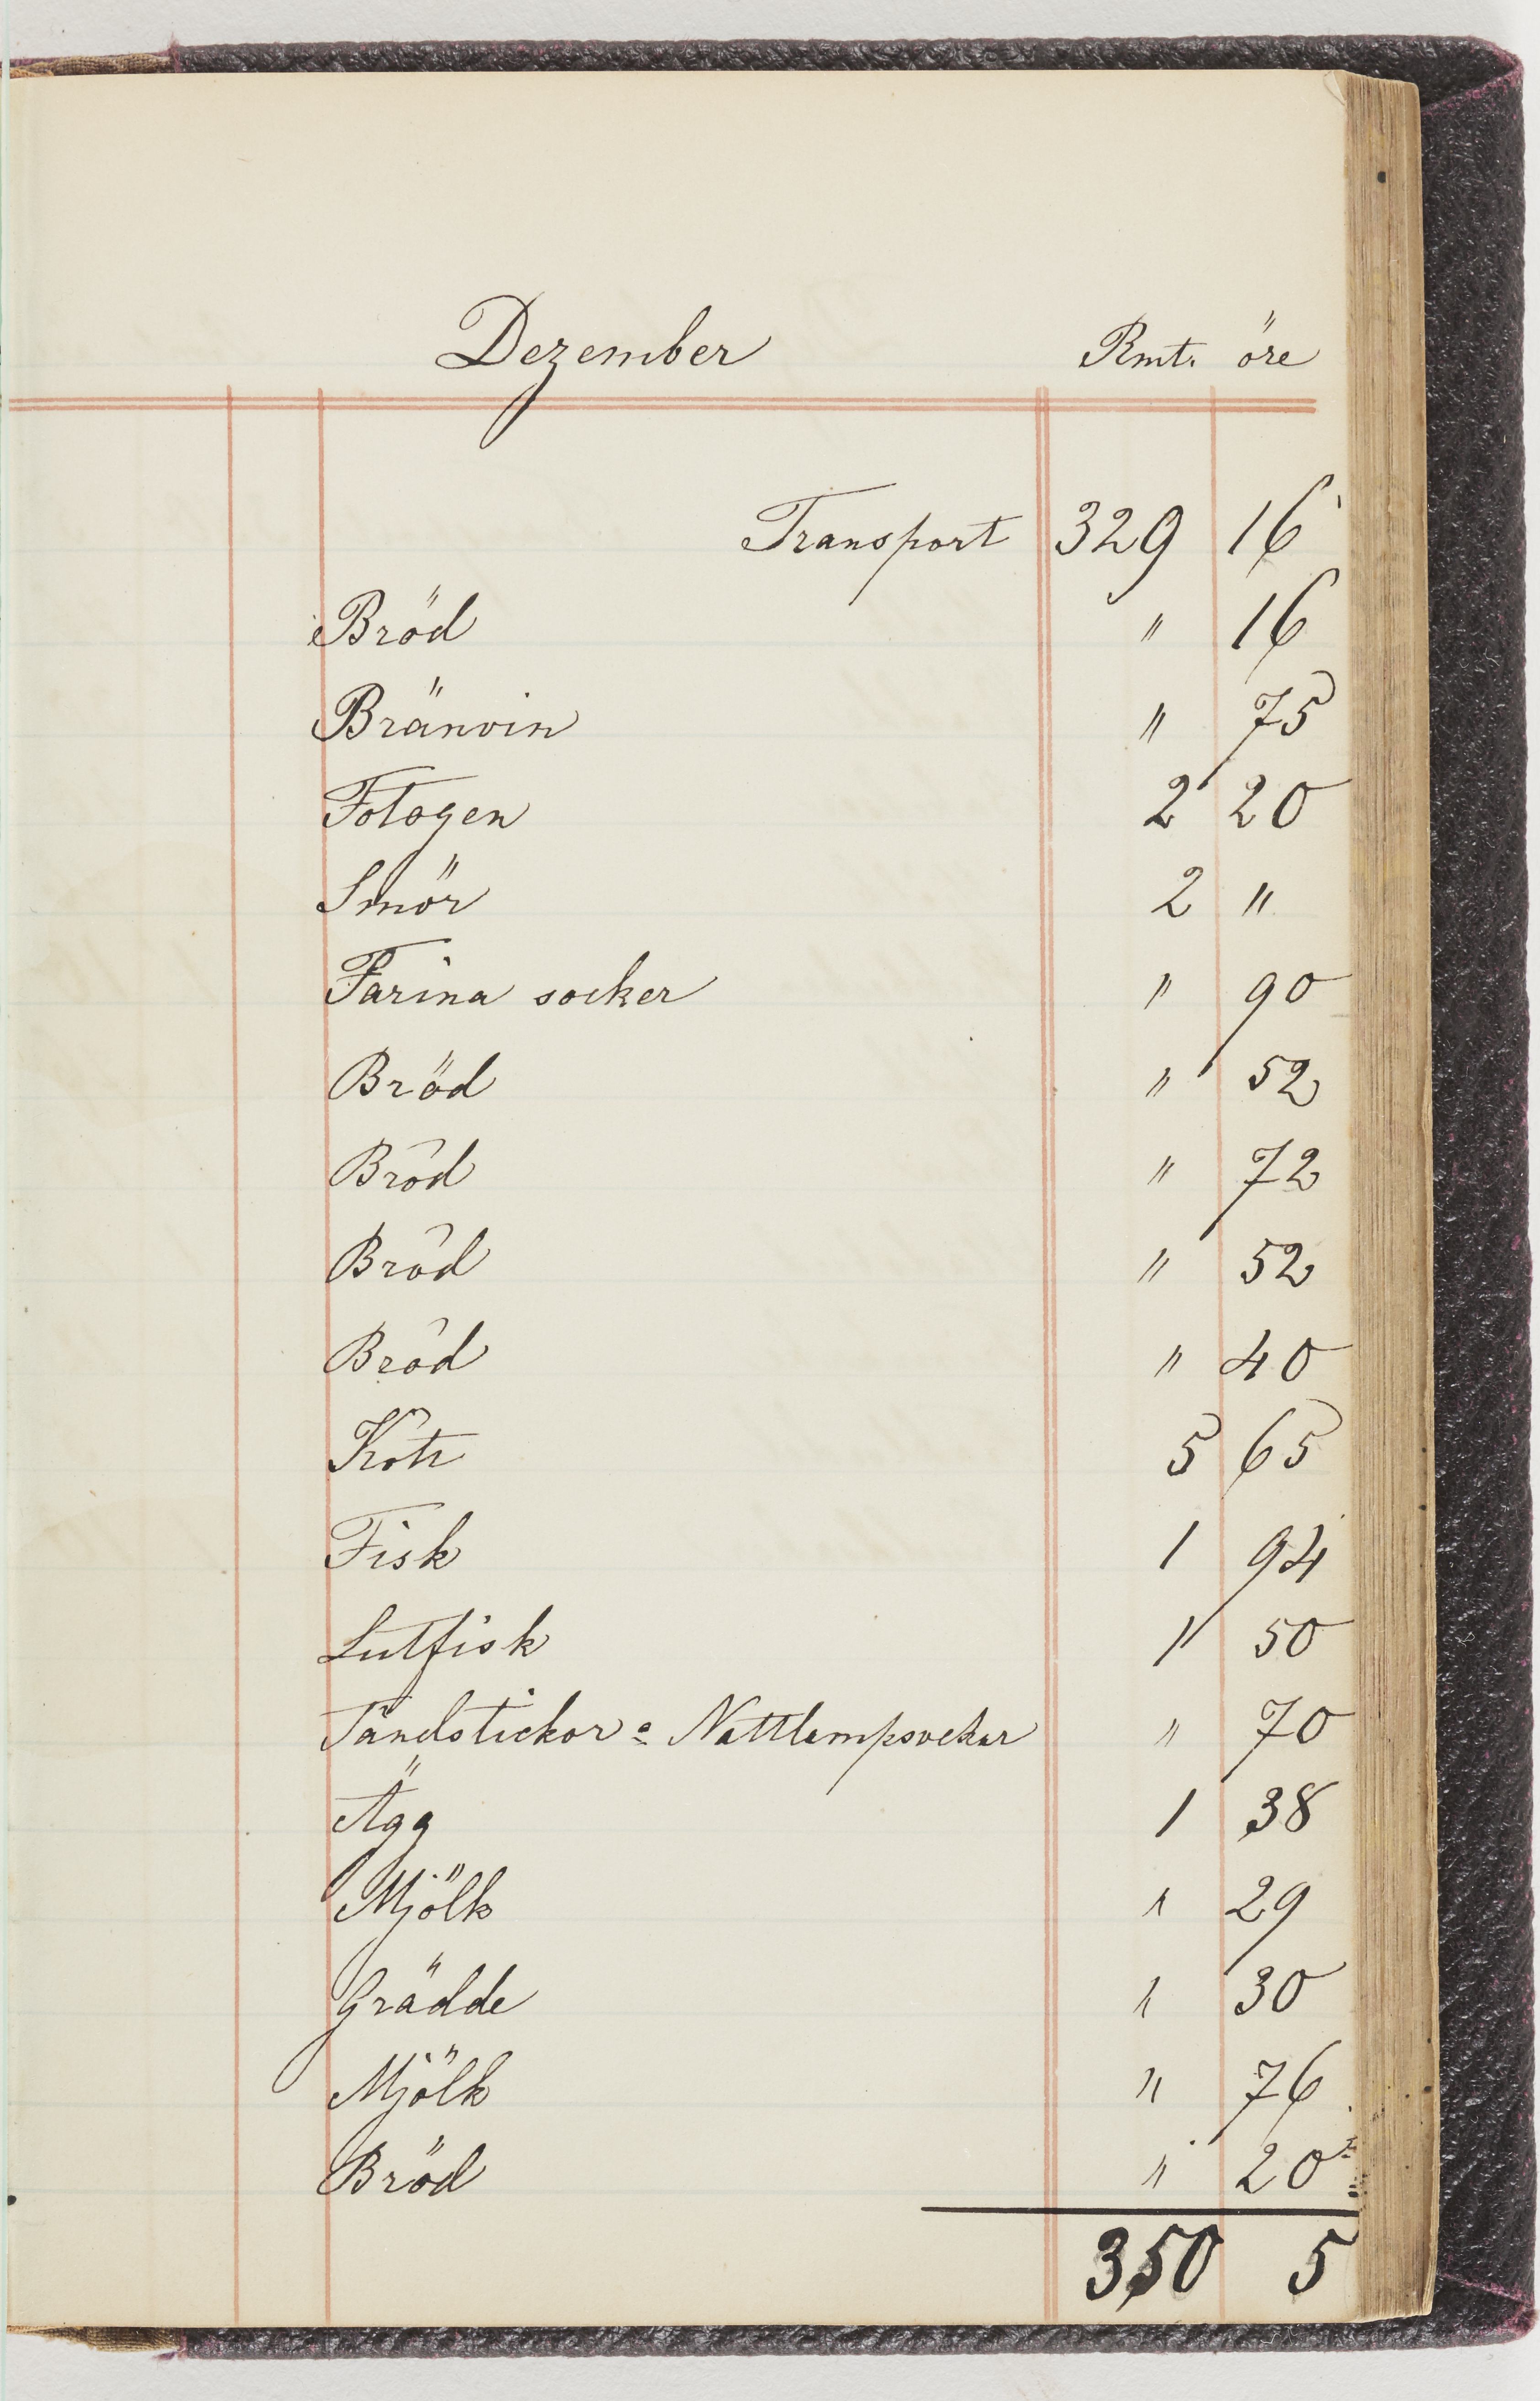 Dezember Rmt. öre
Transport 329 16
Bröd " 16
Bränvin " 75
Fotogen 2 20
Smör 2 "
Farina socker " 90
Bröd " 52
Bröd " 72
Bröd " 52
Bröd " 40
Kött 5 65
Fisk 1 94
Lutfisk " 50
Tändstickor & Nattlampsvekar " 70
Ägg 1 38
Mjölk " 29
Grädde " 30
Mjölk " 76
Bröd " 20
350 5